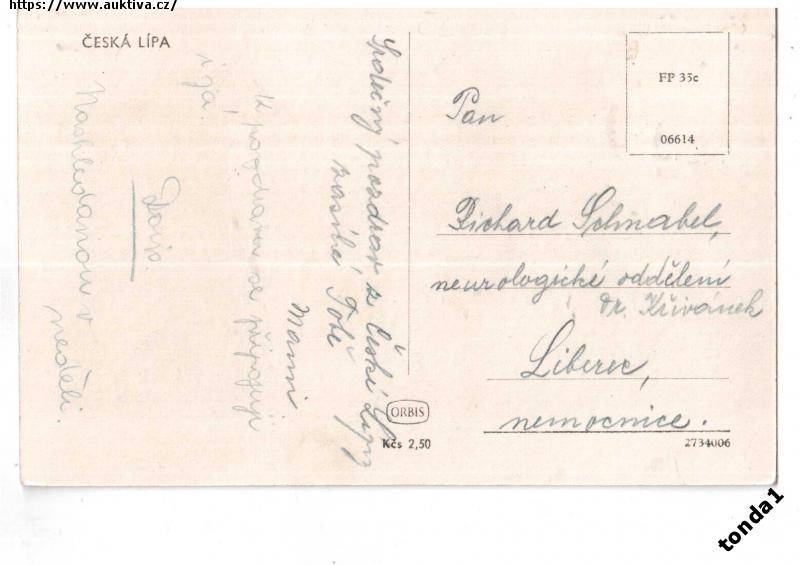 https://www.auktiva.cz/
ČESKÁ LÍPA
Společný pozdrav z České Lípy
zasílá Tobě
Mami
K pozdravu se připojuji
i já.
Nashledanou v
neděli.
FP 35c
06614
Pan
Richard Schnabel,
neurologické oddělení
Dr. Křivánek
Liberec,
nemocnice.
ORBIS
Kčs 2,50
2734006
tonda1